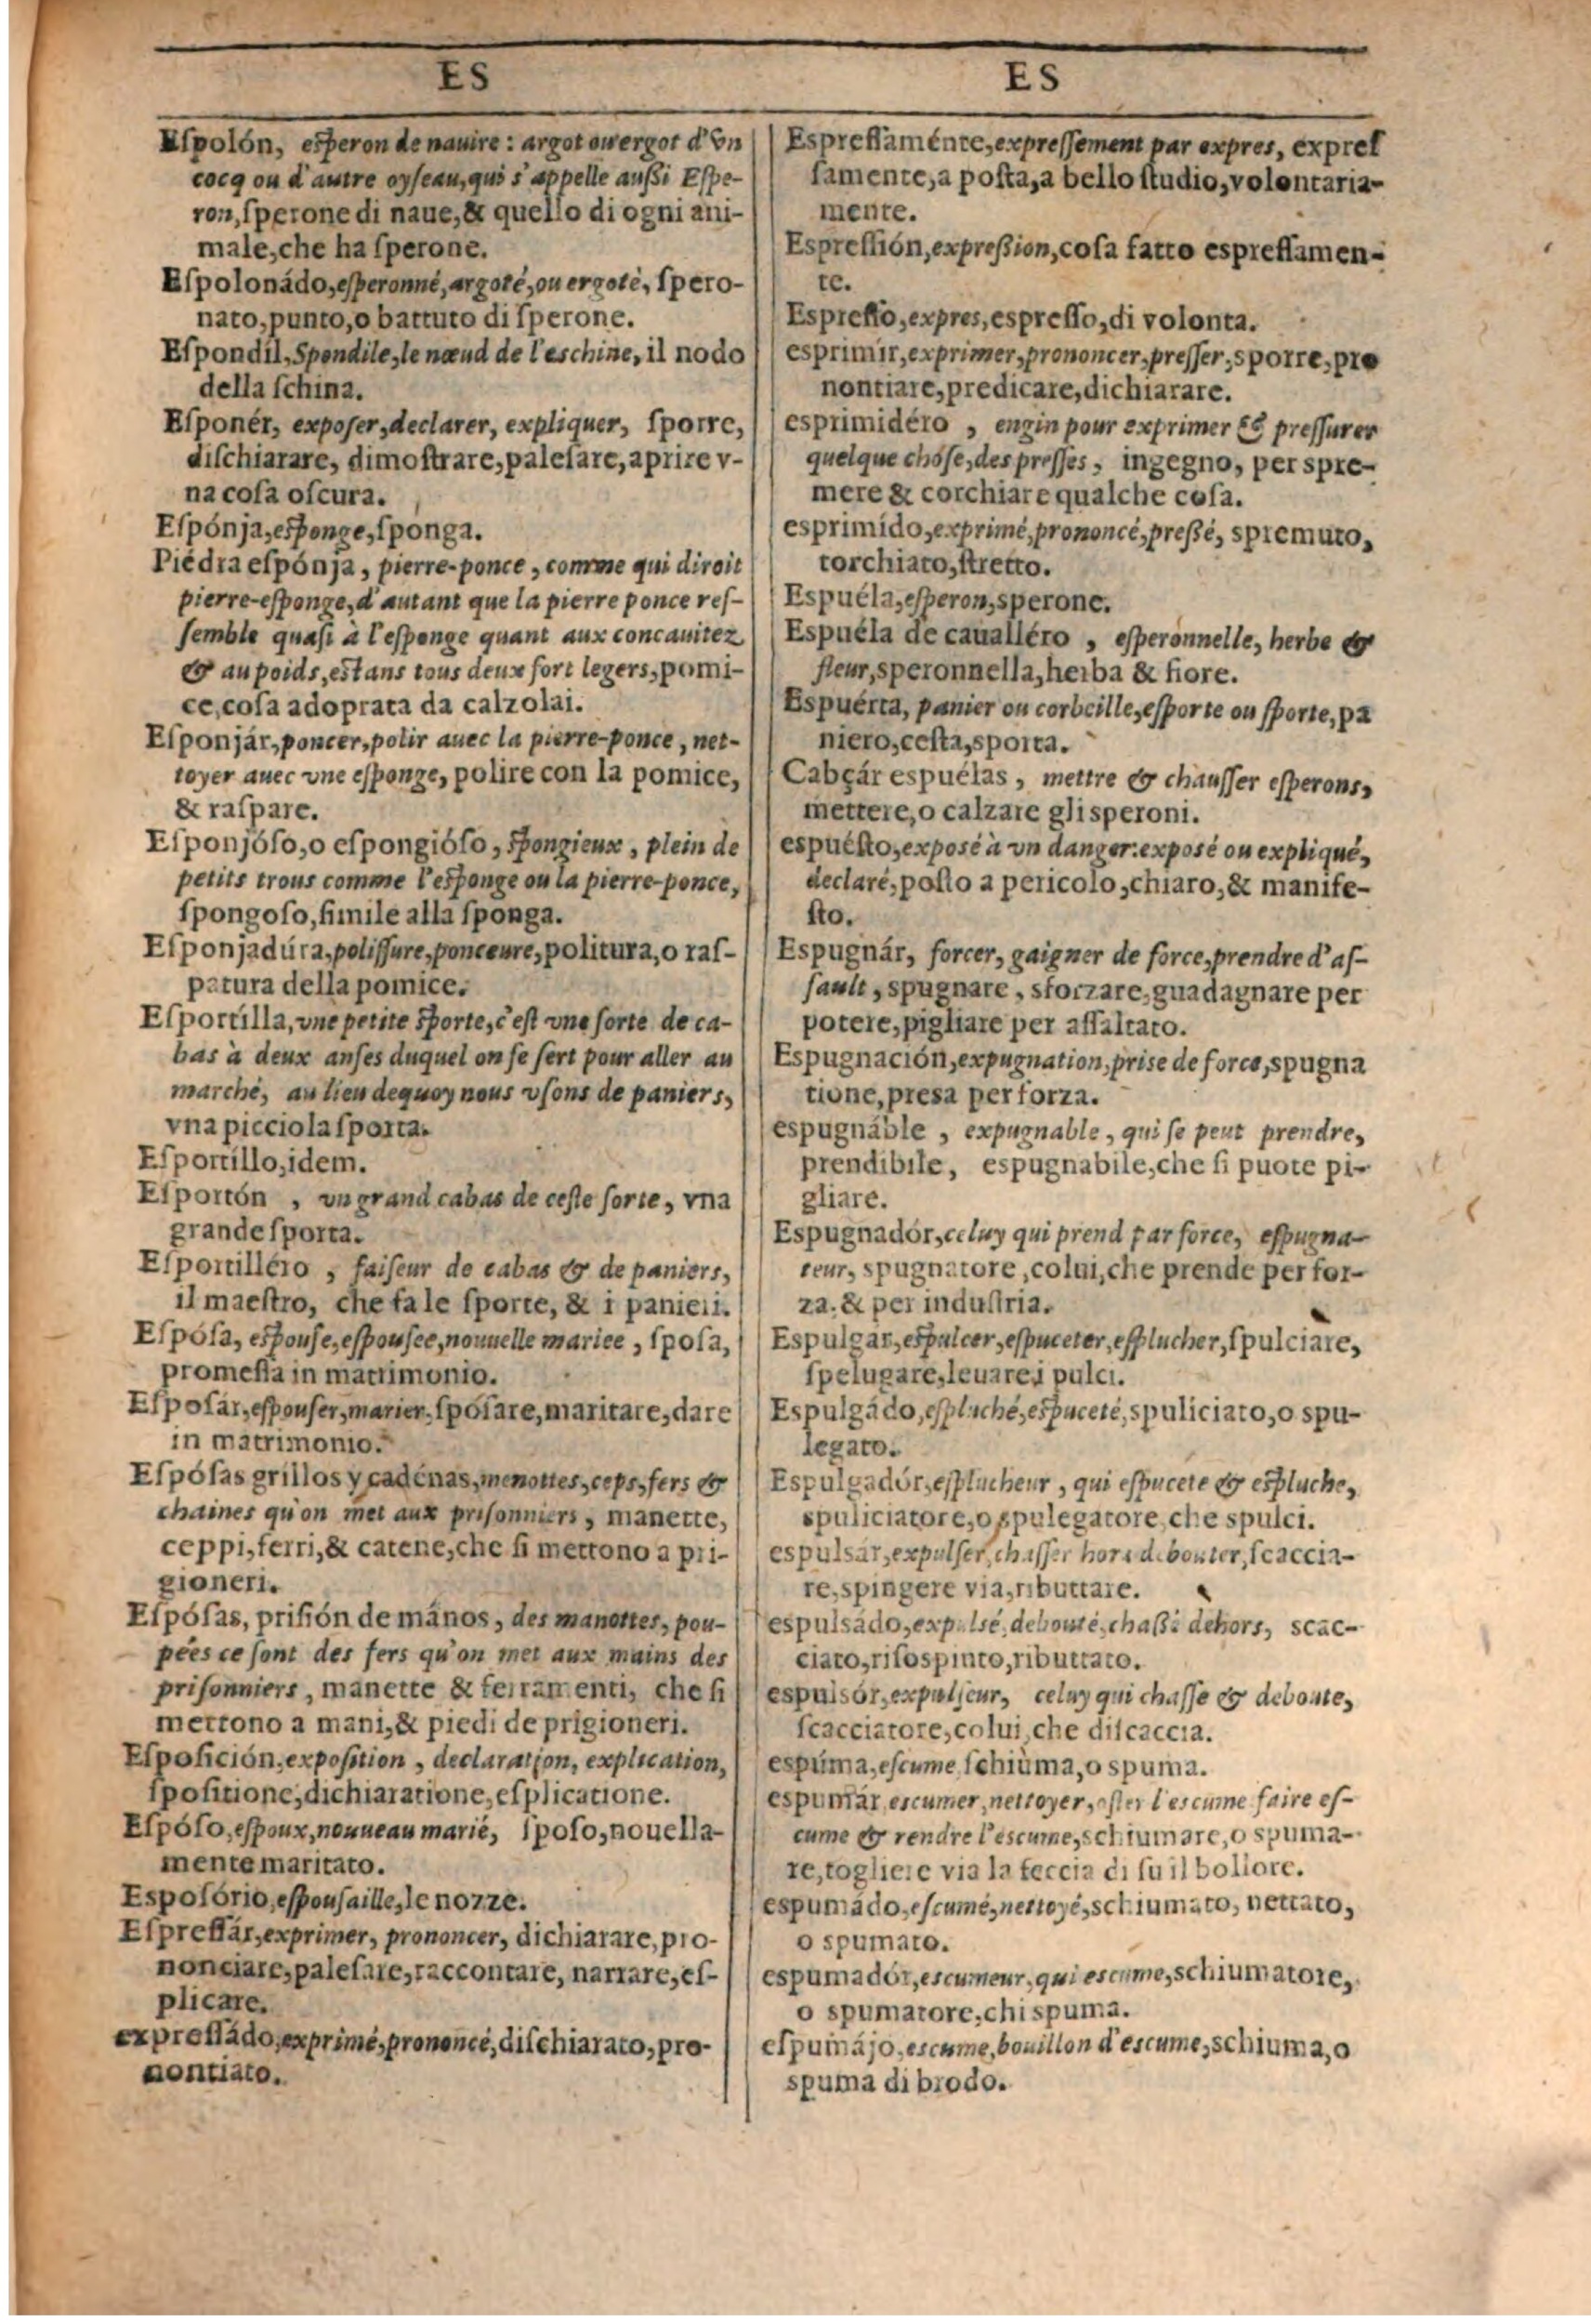 ES
Eſpolón, eſperon de nauire : argot ou ergot d'vn
cocq ou d'autre oyſeau, qui s'appelle auſſi Eſpe-
ron, ſperone di naue, & quello di ogni ani-
male, che ha ſperone.
Eſpolonádo, eſperonné, argoté, ou ergoté, ſpero-
nato, punto, o battuto di ſperone.
Eſpondíl, Spondile, le nœud de l'eschine, il nodo
della ſchina.
Eſponér, expoſer, declarer, expliquer, ſporre,
diſchiarare, dimoſtrare, paleſare, aprire v-
na coſa oſcura.
Eſpónja, eſponge, ſponga.
Piédra eſpónja, pierre-ponce, comme qui diroit
pierre-eſponge, d'autant que la pierre ponce reſ-
ſemble quaſi à l'eſponge quant aux concauitez
& au poids, eſtans tous deux fort legers, pomi-
ce, coſa adoprata da calzolai.
Eſponjár, poncer, polir auec la pierre-ponce, net-
toyer auec vne eſponge, polire con la pomice,
& raſpare.
Eſponjóſo, o eſpongióſo, ſpongieux, plein de
petits trous comme l'eſponge ou la pierre-ponce,
ſpongoſo, ſimile alla ſponga.
Eſponjadúra, poliſſure, ponceure, politura, o raſ-
patura della pomice.
Eſportílla, vne petite ſporte, c'eſt vne ſorte de ca-
bas à deux anſes duquel on ſe ſert pour aller au
marché, au lieu dequoy nous vſons de paniers,
vna picciola ſporta.
Eſportíllo, idem.
Eſportón , vn grand cabas de ceſte ſorte, vna
grande ſporta.
Eſportilléro , faiſeur de cabas & de paniers,
il maeſtro, che fa le ſporte, & i panieri.
Eſpóſa, eſpouſe, eſpouſee, nouuelle mariee, ſpoſa,
promeſſa in matrimonio.
Eſpoſár, eſpouſer, marier, ſpóſare, maritare, dare
in matrimonio.
Eſpóſas gríllos y cadénas, menottes, ceps, fers &
chaines qu'on met aux priſonniers, manette,
ceppi, ferri, & catene, che ſi mettono a pri-
gioneri.
Eſpóſas, priſión de mános, des manottes, pou-
pées ce ſont des fers qu'on met aux mains des
priſonniers, manette & ferramenti, che ſi
mettono a mani, & piedi de prigioneri.
Eſpoſición, expoſition, declaration, explication,
ſpoſitione, dichiaratione, eſplicatione.
Eſpóſo, eſpoux, nouueau marié, ſpoſo, nouella-
mente maritato.
Espoſório, eſpouſaille, le nozze.
Eſpreſſár, exprimer, prononcer, dichiarare, pro-
nonciare, paleſare, raccontare, narrare, eſ-
plicare.
expreſſádo, exprimé, prononcé, diſchiarato, pro-
nontiato.
ES
Espreſſaménte, expreſſement par expres, expreſ
ſamente, a poſta, a bello ſtudio, volontaria-
mente.
Espreſſión, expreſſion, coſa fatto espreſſamen-
te.
Espreſſo, expres, espreſſo, di volonta.
esprimír, exprimer, prononcer, preſſer, sporre, pro
nontiare, predicare, dichiarare.
esprimidéro , engin pour exprimer & preſſurer
quelque choſe, des preſſes, ingegno, per spre-
mere & corchiare qualche coſa.
esprimído, exprimé, prononcé, preſſé, spremuto,
torchiato, ſtretto.
Espuéla, eſperon, sperone.
Espuéla de caualléro , eſperonnelle, herbe &
fleur, speronnella, herba & fiore.
Espuérta, panier ou corbeille, eſporte ou ſporte, pa
niero, ceſta, sporta.
Cabçár espuélas, mettre & chauſſer eſperons,
mettere, o calzare gli speroni.
espuéſto, exposé à vn danger: exposé ou expliqué,
declaré, poſto a pericolo, chiaro, & manife-
ſto.
Espugnár, forcer, gaigner de force, prendre d'aſ-
ſault, spugnare, sforzare, guadagnare per
potere, pigliare per aſſaltato.
Espugnación, expugnation, prise de force, spugna
tione, presa per forza.
espugnáble , expugnable, qui ſe peut prendre,
prendibile, espugnabile, che ſi puote pi-
gliare.
Espugnadór, celuy qui prend par force, eſpugna-
teur, spugnatore, colui, che prende per for-
za, & per induſtria.
Espulgár, eſpulcer, eſpuceter, eſplucher, ſpulciare,
ſpelugare, leuare i pulci.
Espulgádo, eſpluché, eſpuceté, spuliciato, o spu-
legato.
Espulgadór, eſplucheur, qui eſpucete & eſpluche,
spuliciatore, o spulegatore, che spulci.
espulsár, expulſer, chaſſer hors debouter, ſcaccia-
re, spingere via, ributtare.
espulsádo, expulsé, debouté, chaſſé dehors, scac-
ciato, riſospinto, ributtato.
espulsór, expulſeur, celuy qui chaſſe & deboute,
ſcacciatore, colui, che diſcaccia.
espúma, eſcume ſchiùma, o spuma.
espumár, escumer, nettoyer, oſter l'escume faire eſ-
cume & rendre l'escume, schiumare, o spuma-
re, togliere via la feccia di ſu il bollore.
espumádo, eſcumé, nettoyé, schiumato, nettato,
o spumato.
espumadór, escumeur, qui escume, schiumatore,
o spumatore, chi spuma.
eſpumájo, escume, bouillon d'escume, schiuma, o
spuma di brodo.